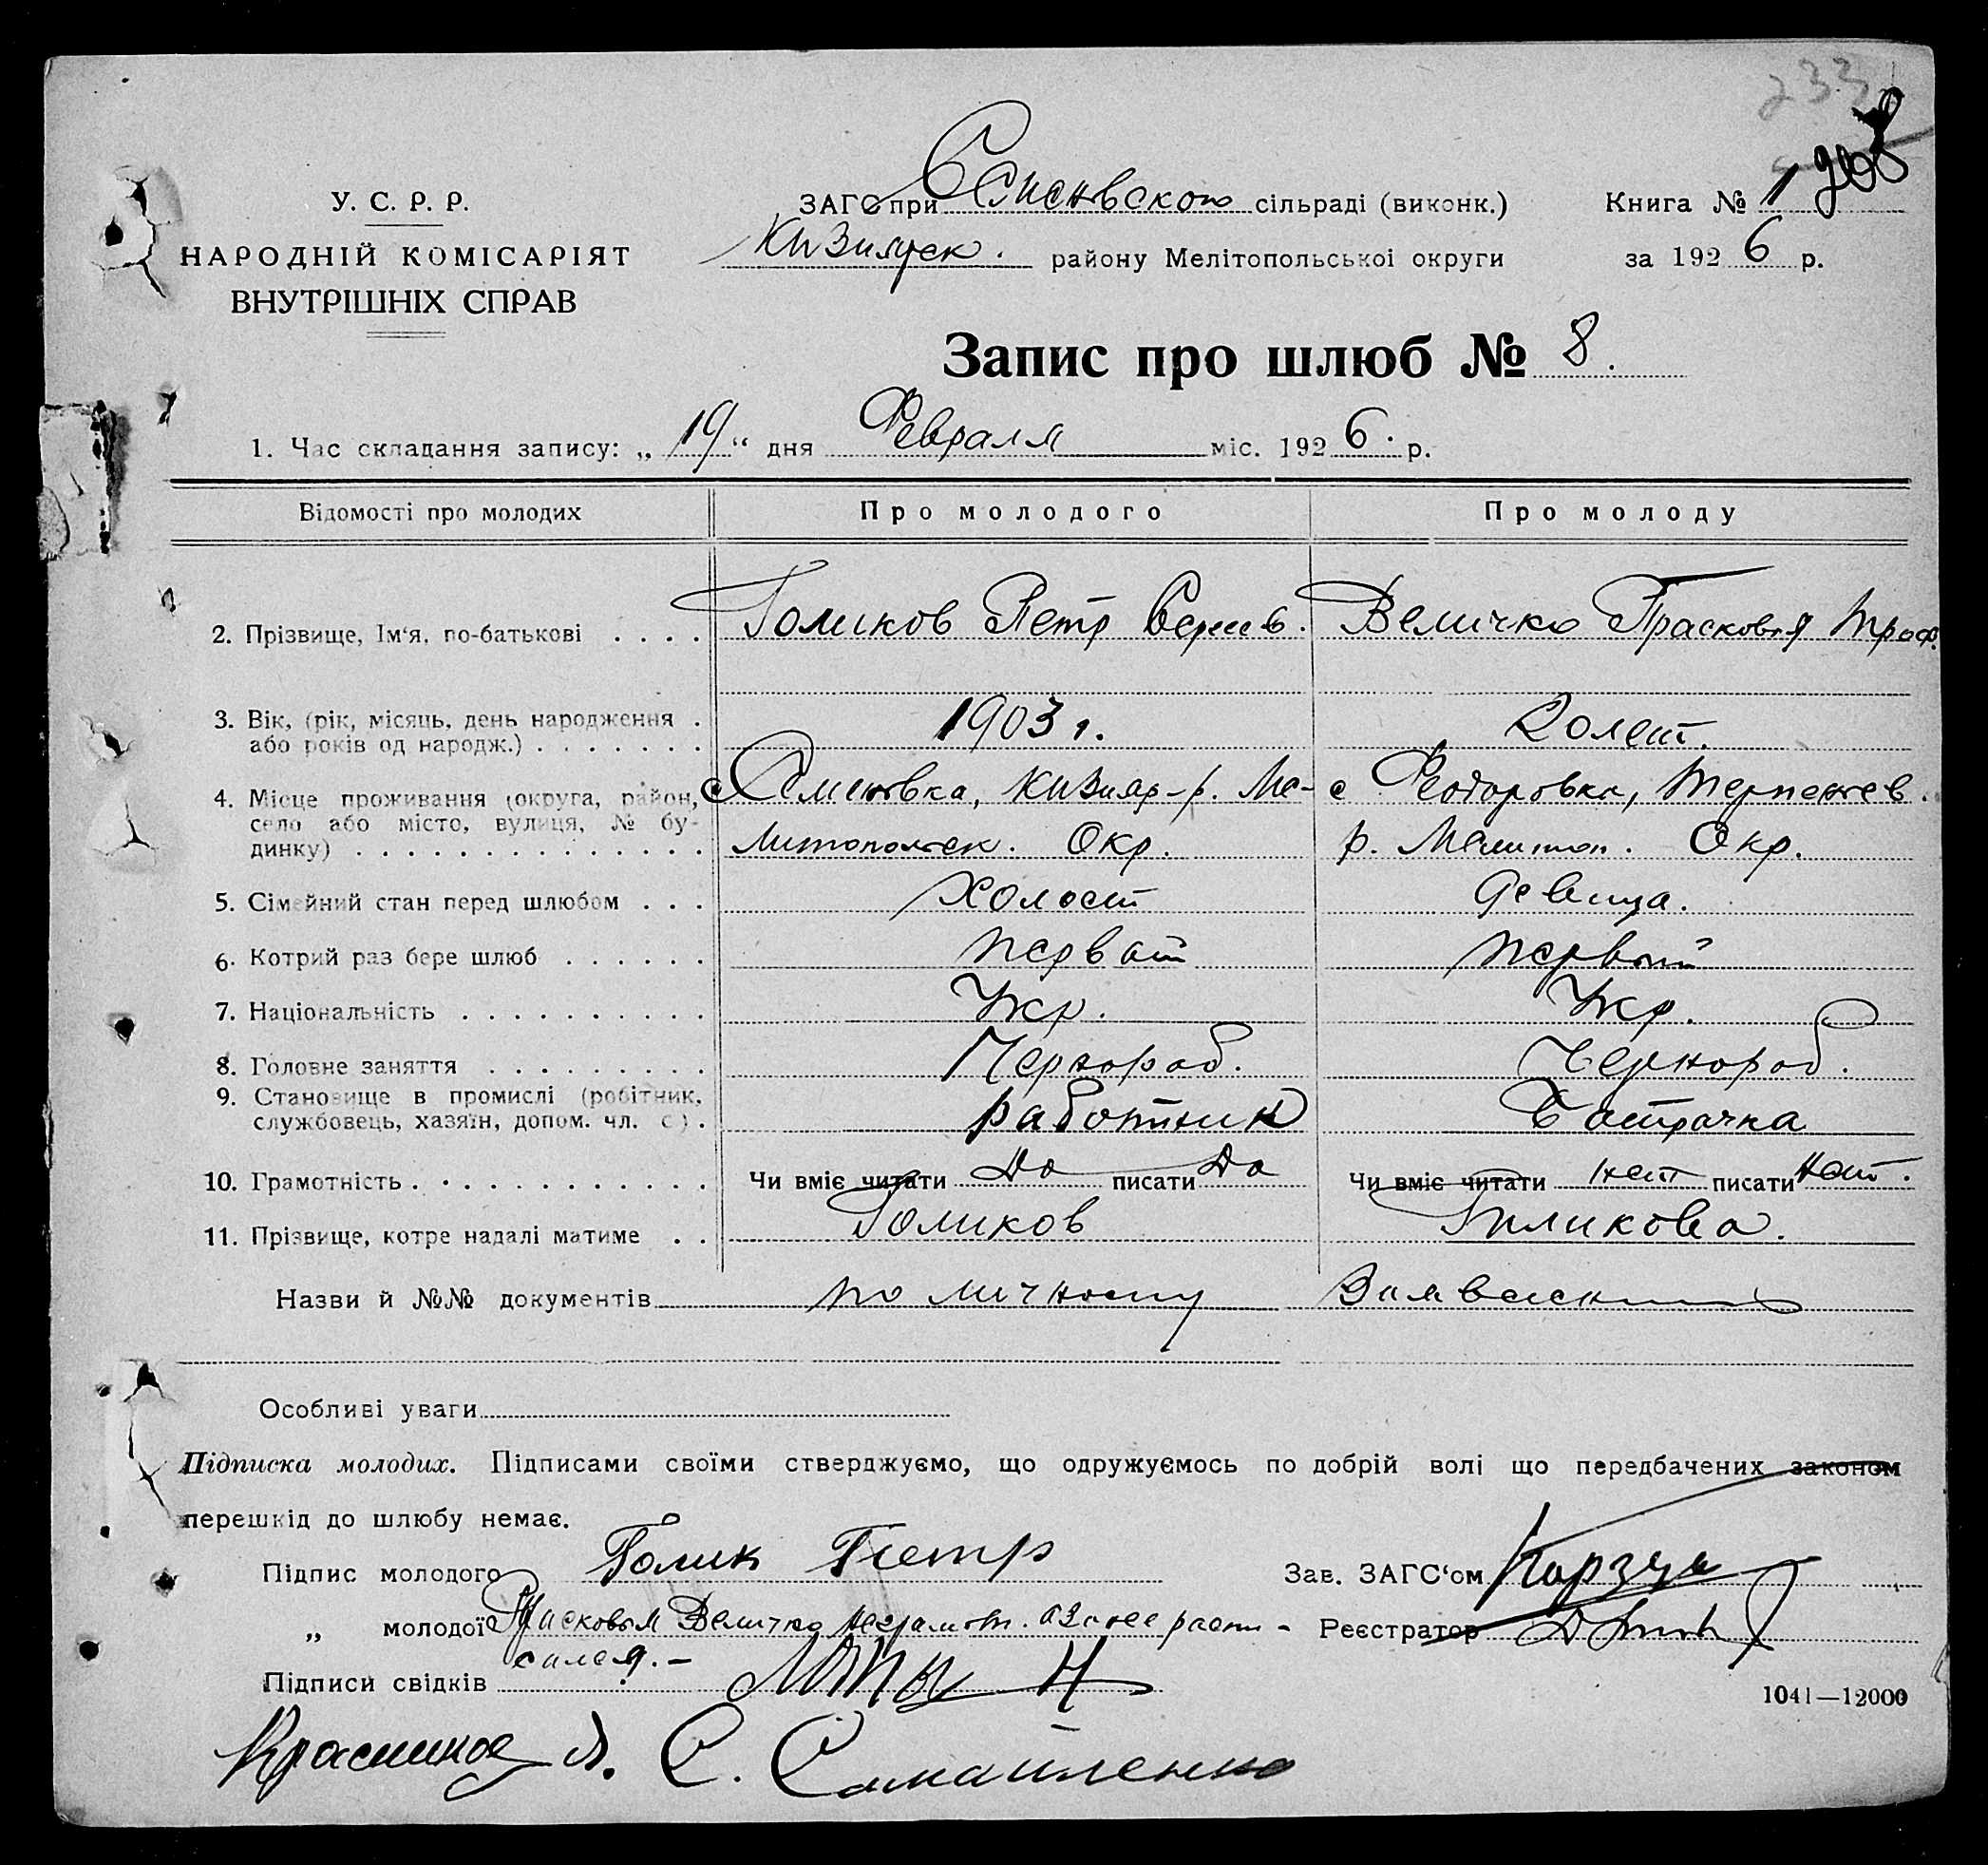 233
208
У. С. Р. Р.
НАРОДНІЙ КОМІСАРІЯТ
ВНУТРІШНІХ СПРАВ
ЗАГС при Семеновском сільраді (виконк.)
Кизиярск. району Мелітопольської округи
Книга № 1
за 1926 р.
Запис про шлюб № 8.
1. Час складання запису: „ 19 “ дня Февраля міс. 1926. р.
Відомості про молодих
Про молодого
Про молоду
2. Прізвище, Ім‘я, по-батькові . . . .
Голиков Петр Сергеев.
Величко Прасковья Троф.
3. Вік, (рік, місяць, день народження .
або років од народж.) . . . . . . .
1903 г.
20 лет.
4. Місце проживання (округа, район,
село або місто, вулиця, № бу-
динку) . . . . . . . . . . . . . .
с Семеновка, Кизияр-р. Ме-
литопольск. Окр.
с Феодоровка, Терпенев.
р. Мелитоп. Окр.
5. Сімейний стан перед шлюбом . . .
Холост
девица.
6. Котрий раз бере шлюб . . . . . .
первый
первый
7. Національність . . . . . . . . . .
Укр.
Укр.
8. Головне заняття . . . . . . . . .
Чернораб.
Чернораб.
9. Становище в промислі (робітник,
службовець, хазяїн, допом. чл. с) .
работник
Батрачка
10. Грамотність . . . . . . . . . . . .
Чи вміє читати Да писати Да
Чи вміє читати нет писати нет.
11. Прізвище, котре надалі матиме . .
Голиков
Голикова.
Назви й №№ документів по личному
Особливі уваги
Підписка молодих. Підписами своїми стверджуємо, що одружуємось по добрій волі що передбачених законом
перешкід до шлюбу немає.
Підпис молодого Голик Петр
Зав. ЗАГС‘ом
„ молодої Прасковья Величко неграмот. а за нее распи-
сался.-
Реєстратор
Підписи свідків
1041—12000
С. Самойленко